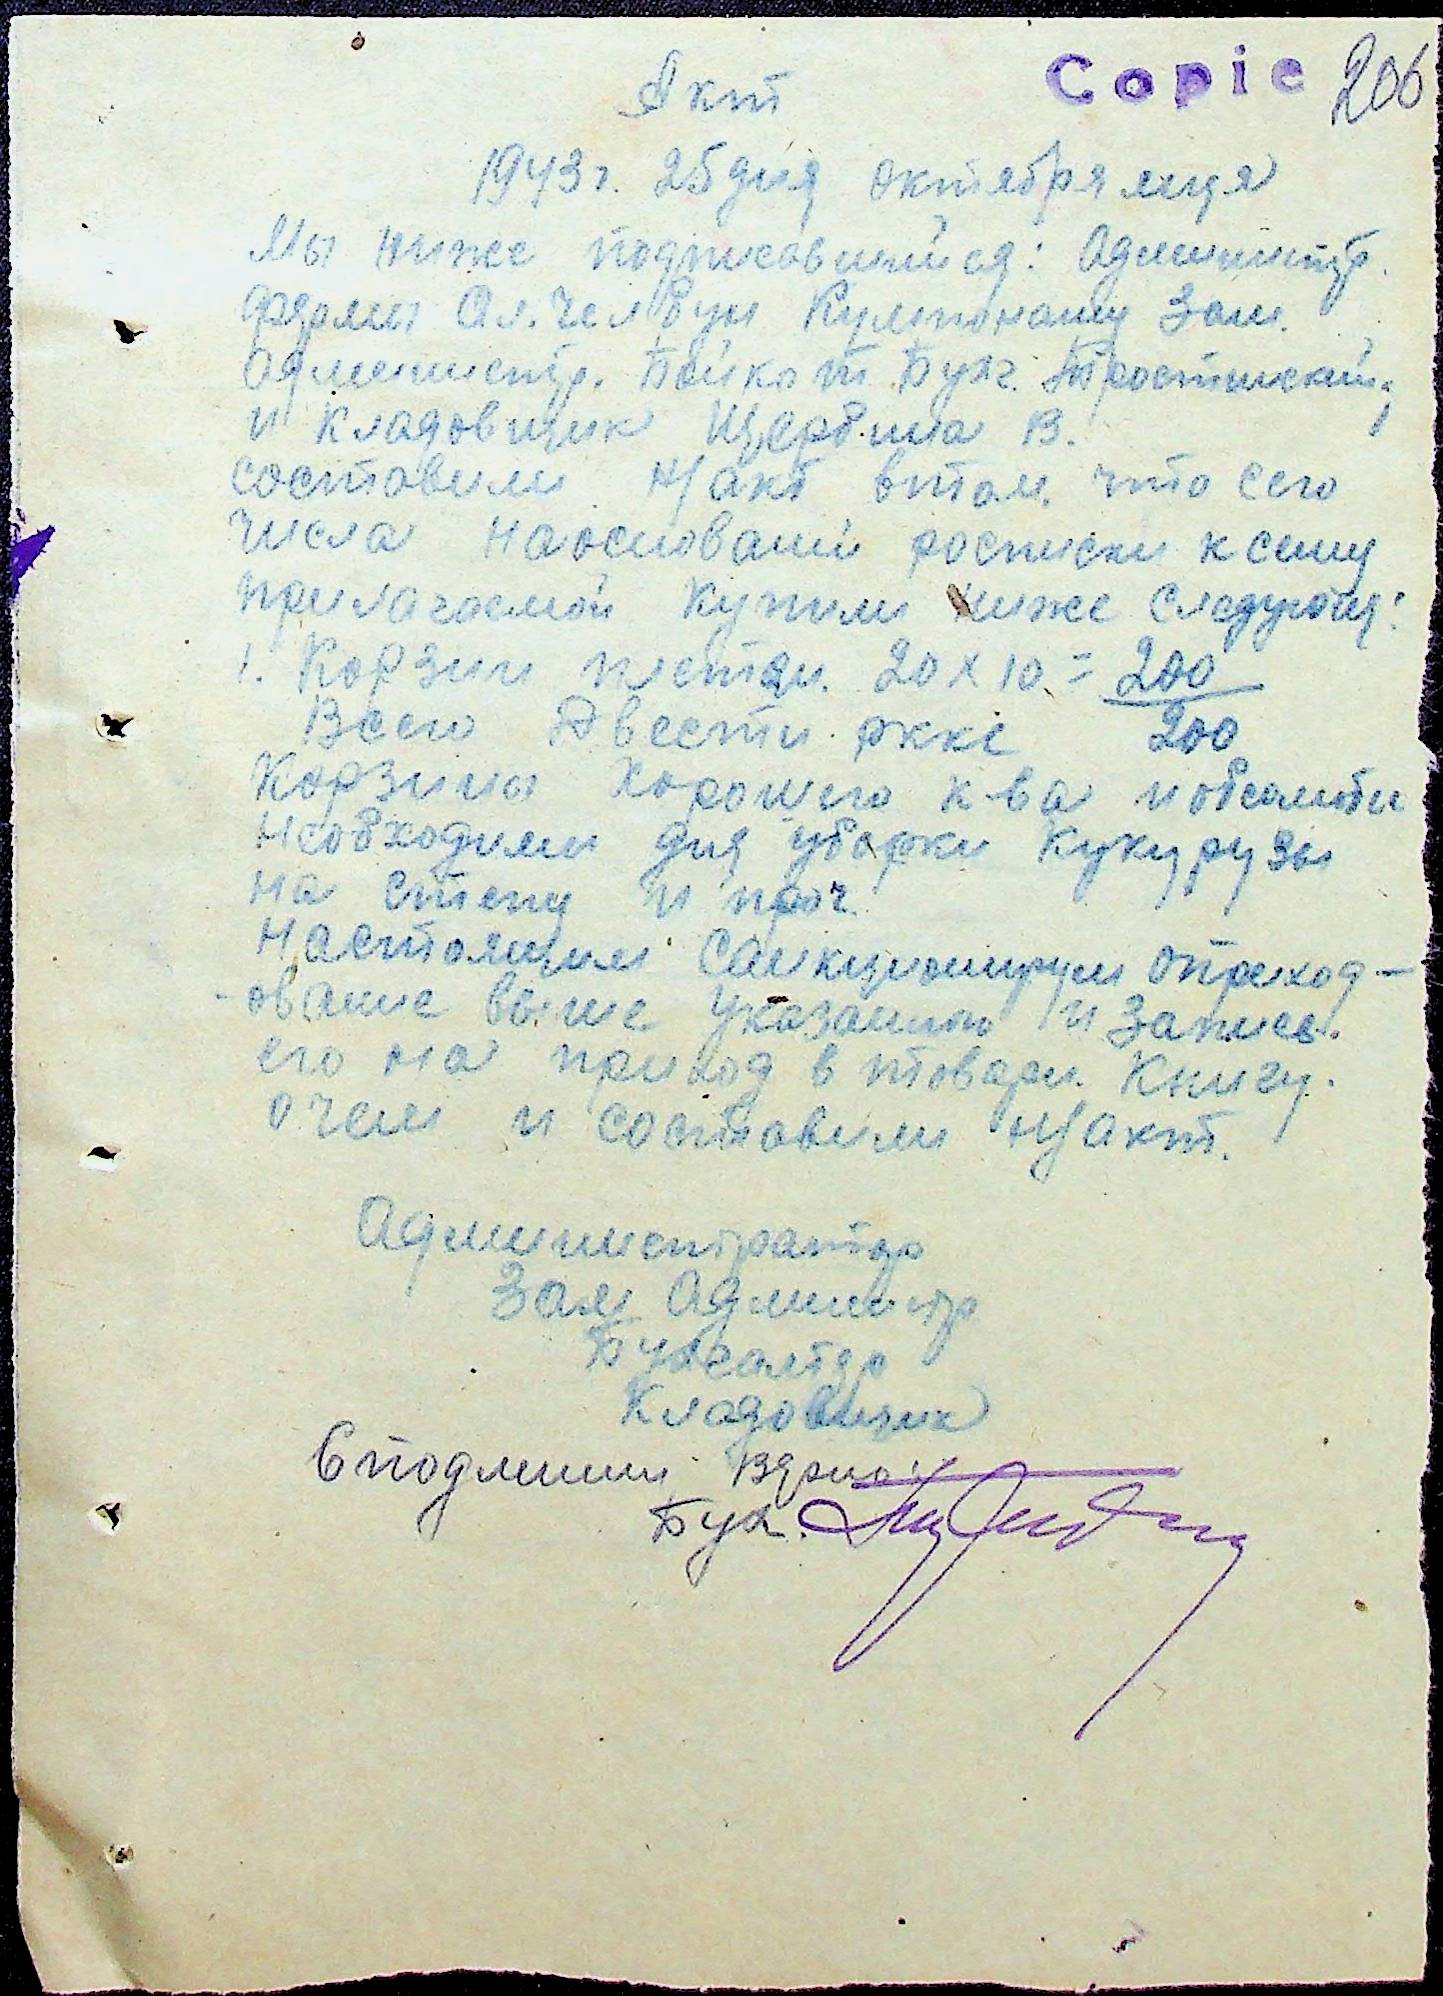 Copie 206
Акт
1943 г. 25 дня октября м-ця
Мы ниже подписавшийся: Администр.
фермы Ал. Чел Бун Зам.
Администр. Бойко т. Бухг.
и Кладовщик Щербина В.
составили н/акт втом. что сего
числа наосновании росписки ксему
прилагаемой Купили ниже следующ:
1. Корзин плетян. 20 х 10 = 200
Всего Двести ркке 200
Корзины хорошего к-ва и
необходими для уборки кукурузы
на степу и проч.
Настоящим санкционируем оприход-
-ование выше указанного и запись.
его на приход в товарн. Книгу.
очем и составили н/акт.
Администратор
Зам Администр
Бухгалтер
Кладовщик
Сподлинним Верно:
Бух.